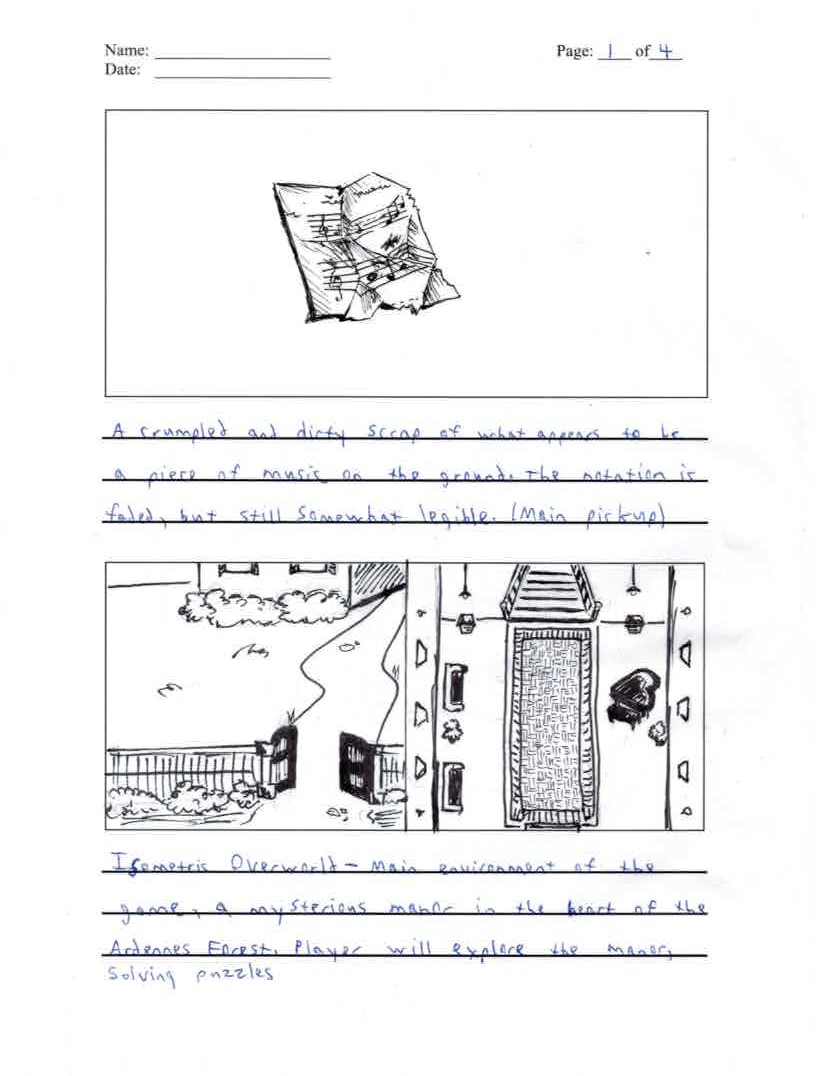 Name:
Page: 1 of 4
Date:
music
A crumpled and dirty scrap of what appears to be
a piece of music on the ground. The notation is
faded, but still somewhat legible. (Main pickup)
Isometric Overworld - Main environment of the
game, a mysterious manor in the heart of the
Ardennes Forest. Player will explore the manor,
solving puzzles